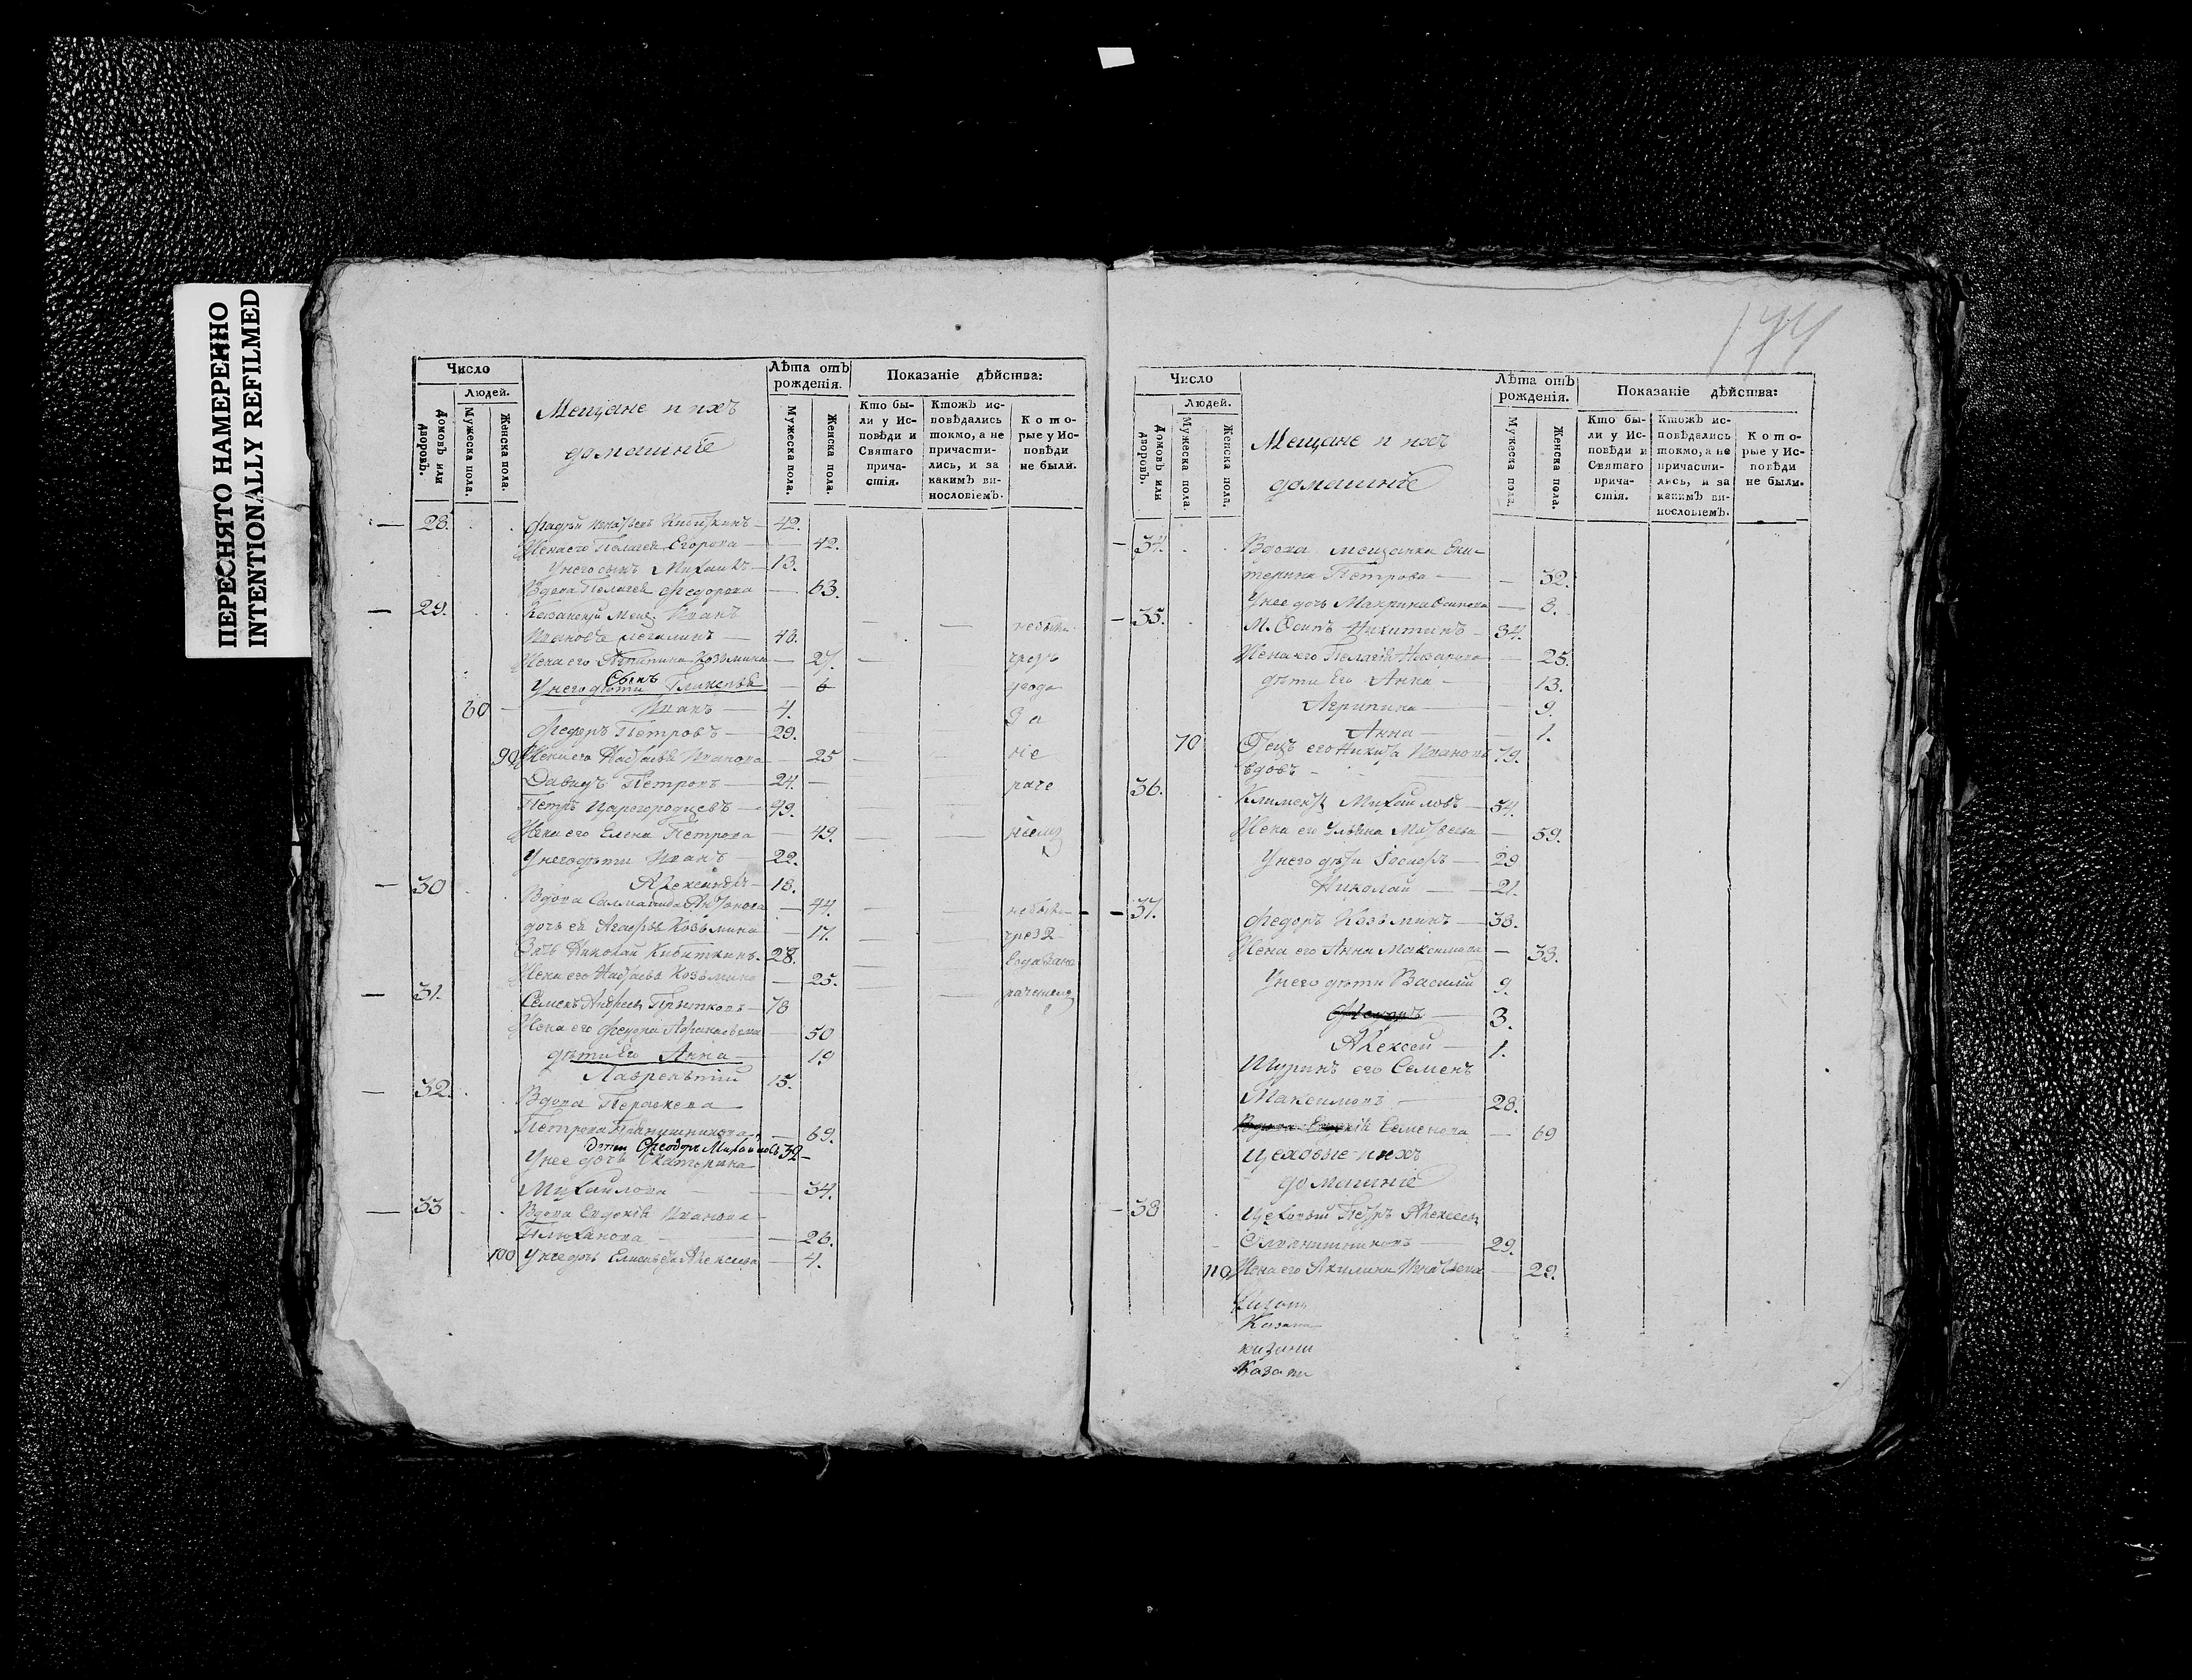 ПЕРЕСНЯТО НАМЕРЕННО
INTENTIONALLY REFILMED
Число
Людей.
Домовъ или дворовъ.
Мужеска пола.
Женска пола.
Мещане и ихъ
домашніе
Лѣта отъ рожденія.
Мужеска пола.
Женска пола.
Показаніе дѣйства:
Кто были у Исповѣди и Святаго причастія.
Ктожъ исповѣдались токмо, а не причастились, и за какимъ винословіемъ.
Которые у Исповѣди не были.
28. Фадѣй Кибиткинъ 42.
Жена его Пелагея Егорова 42.
У него сынъ Михаилъ 13.
Вдова Пелагея Федорова 63.
29. Казанскій Мещ. Иванъ
Ивановъ 48. небыли
Жена его Козьмина 27. чрезъ
Сынъ
У него дѣти Гликерья 6
60 Иванъ 4. За
Федоръ Петровъ 29.
90 Жена его Настасья Иванова 25 не
Давидъ Петровъ 24. раче
Петръ Царегородцевъ 49.
Жена его Елена Петрова 49. ніемъ
У него дѣти Иванъ 22.
Александръ 18.
30 Вдова Антонова 44. небыли
дочь ея Агафья Козьмина 17. чрез 2
Зять Николай Кибиткинъ 28.
Жена его Настасья Козьмина 25.
31. Семенъ Андреевъ 78
Жена его Федора Афанасьева 50
дѣти его Анна 19
Лаврентій 15.
32. Вдова Параскева
Петрова 69.
Федоръ Михайловъ 32
У нее дочь Екатерина
Михайлова 34.
33 Вдова Евдокія Иванова
Плюханова 26.
100 У нее дочь Елисавета Алексеева 4.
174
Число
Людей.
Домовъ или дворовъ.
Мужеска пола.
Женска пола.
Мещане и ихъ
домашніе
Лѣта отъ рожденія.
Мужеска пола.
Женска пола.
Показаніе дѣйства:
Кто были у Исповѣди и Святаго причастія.
Ктожъ исповѣдались токмо, а не причастились, и за какимъ винословіемъ.
Которые у Исповѣди не были.
34. Вдова мещанка Ека-
терина Петрова 32.
У нее дочь Макрина Осипова 8.
35. М. Осипъ Никитинъ 34.
Жена его Пелагія Назарова 25.
дѣти его Анна 13.
Агрипина 9.
Анна 1.
70 Отецъ его Никита Ивановъ 79.
вдовъ
36. Климентъ Михайловъ 54.
Жена его Ульяна Матвеева 59.
У него дѣти Іосифъ 29
Николай 21.
37. Федоръ Козьминъ 38.
Жена его Анна Максимова 33.
У него дѣти Василій 9.
3.
Алексей 1.
Шуринъ его Семенъ
Максимовъ 28.
Вдова Евдокія Семенова 69
Цеховые и ихъ
домашніе
38 Цеховый Петръ Алексеевъ
29.
110 Жена его Акилина Игнатьева 29.
Казань
Казани
казани
Казани